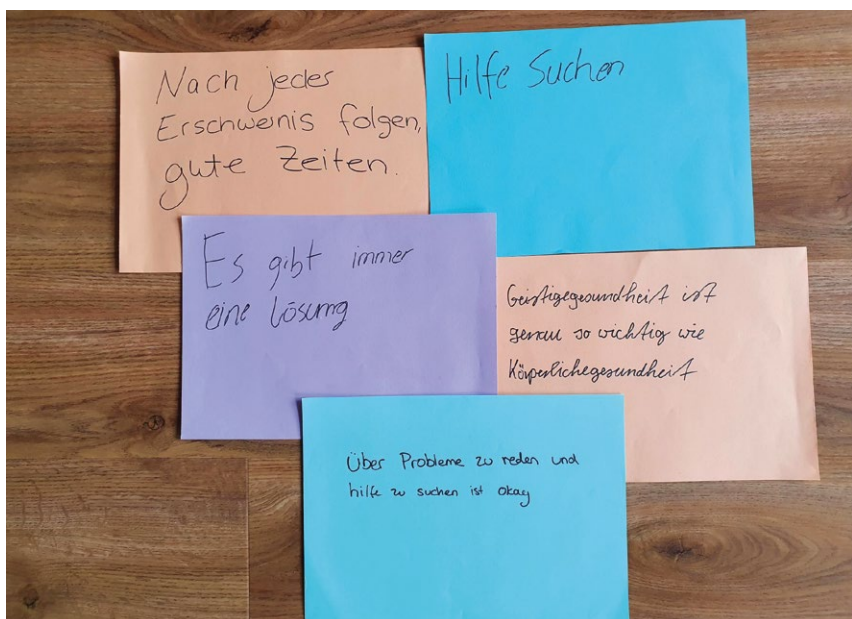 Nach jedes
Erschwernis folgen,
gute Zeiten.
Hilfe Suchen
Es gibt immer
eine lösung
Geistigegesundheit ist
genau so wichtig wie
Körperlichegesundheit
Über Probleme zu reden und
hilfe zu suchen ist okay